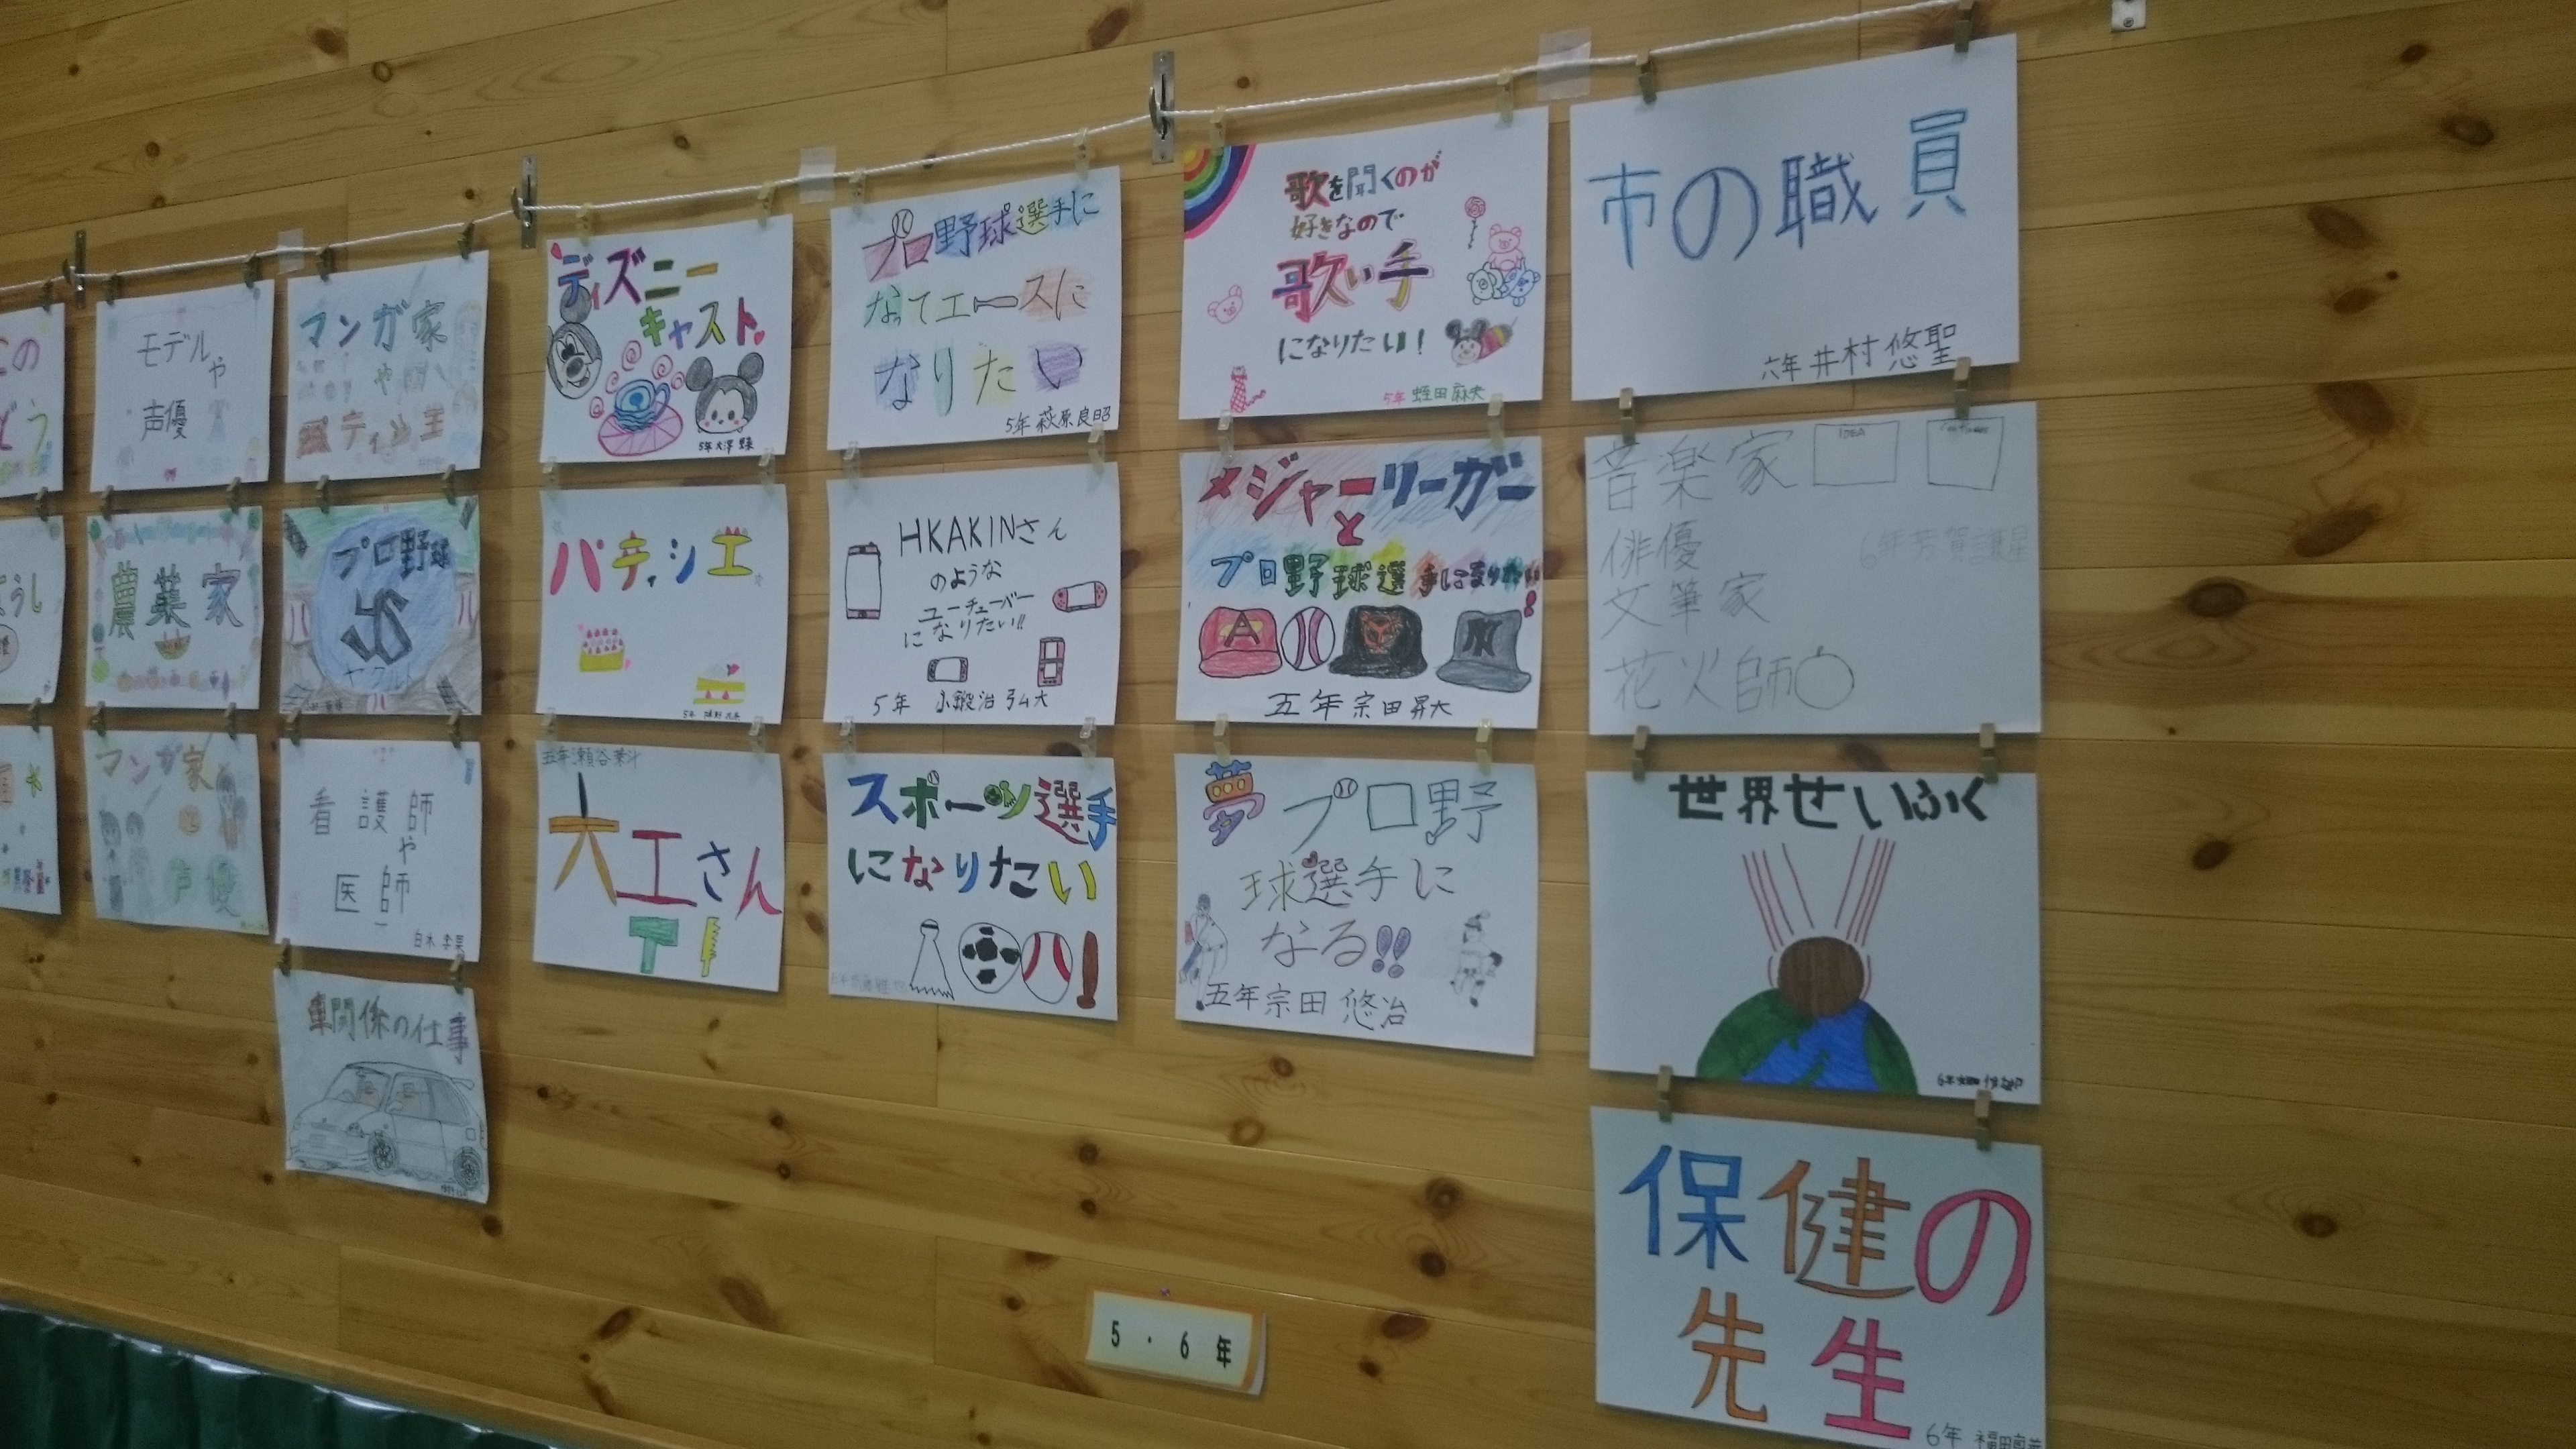 モデルや
声優
農業家
マンガ家
声優
マンガ家
や
プロ野球
ヤクルト
看護師
や
医師
白木
車関係の仕事
ディズニー
キャスト
5年 大澤
パティシエ
5年
五年 瀬谷
大工さん
プロ野球選手に
なってエースに
なりたい
5年 萩原良昭
HKAKINさん
のような
ユーチューバー
になりたい!!
5年 小鍛治 弘大
スポーツ選手
になりたい
歌を聞くのが
好きなので
歌い手
になりたい!
5年 蛭田麻央
メジャーリーガー
と
プロ野球選手になりたい!
五年 宗田昇大
夢プロ野
球選手に
なる!!
五年宗田 悠冶
市の職員
六年 井村悠聖
音楽家
IDEA
俳優
文筆家
花火師
6年芳賀謙星
世界せいふく
保健の
先生
6年 福田
5・6年